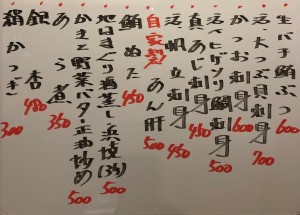 生バチ鮪ぶつ 600
活大つぶ貝刺身 700
かつお刺身 600
活ヘビゲソリ鯛刺身 500
真あじ刺身 450
活帆立刺身 450
自家製 あん肝 500
鮪ぬた 450
地はまぐり酒蒸し浜焼(3ヶ) 500
かきと野菜バター正油炒め 500
あら煮 350
銀杏 480
絹かつぎ 300